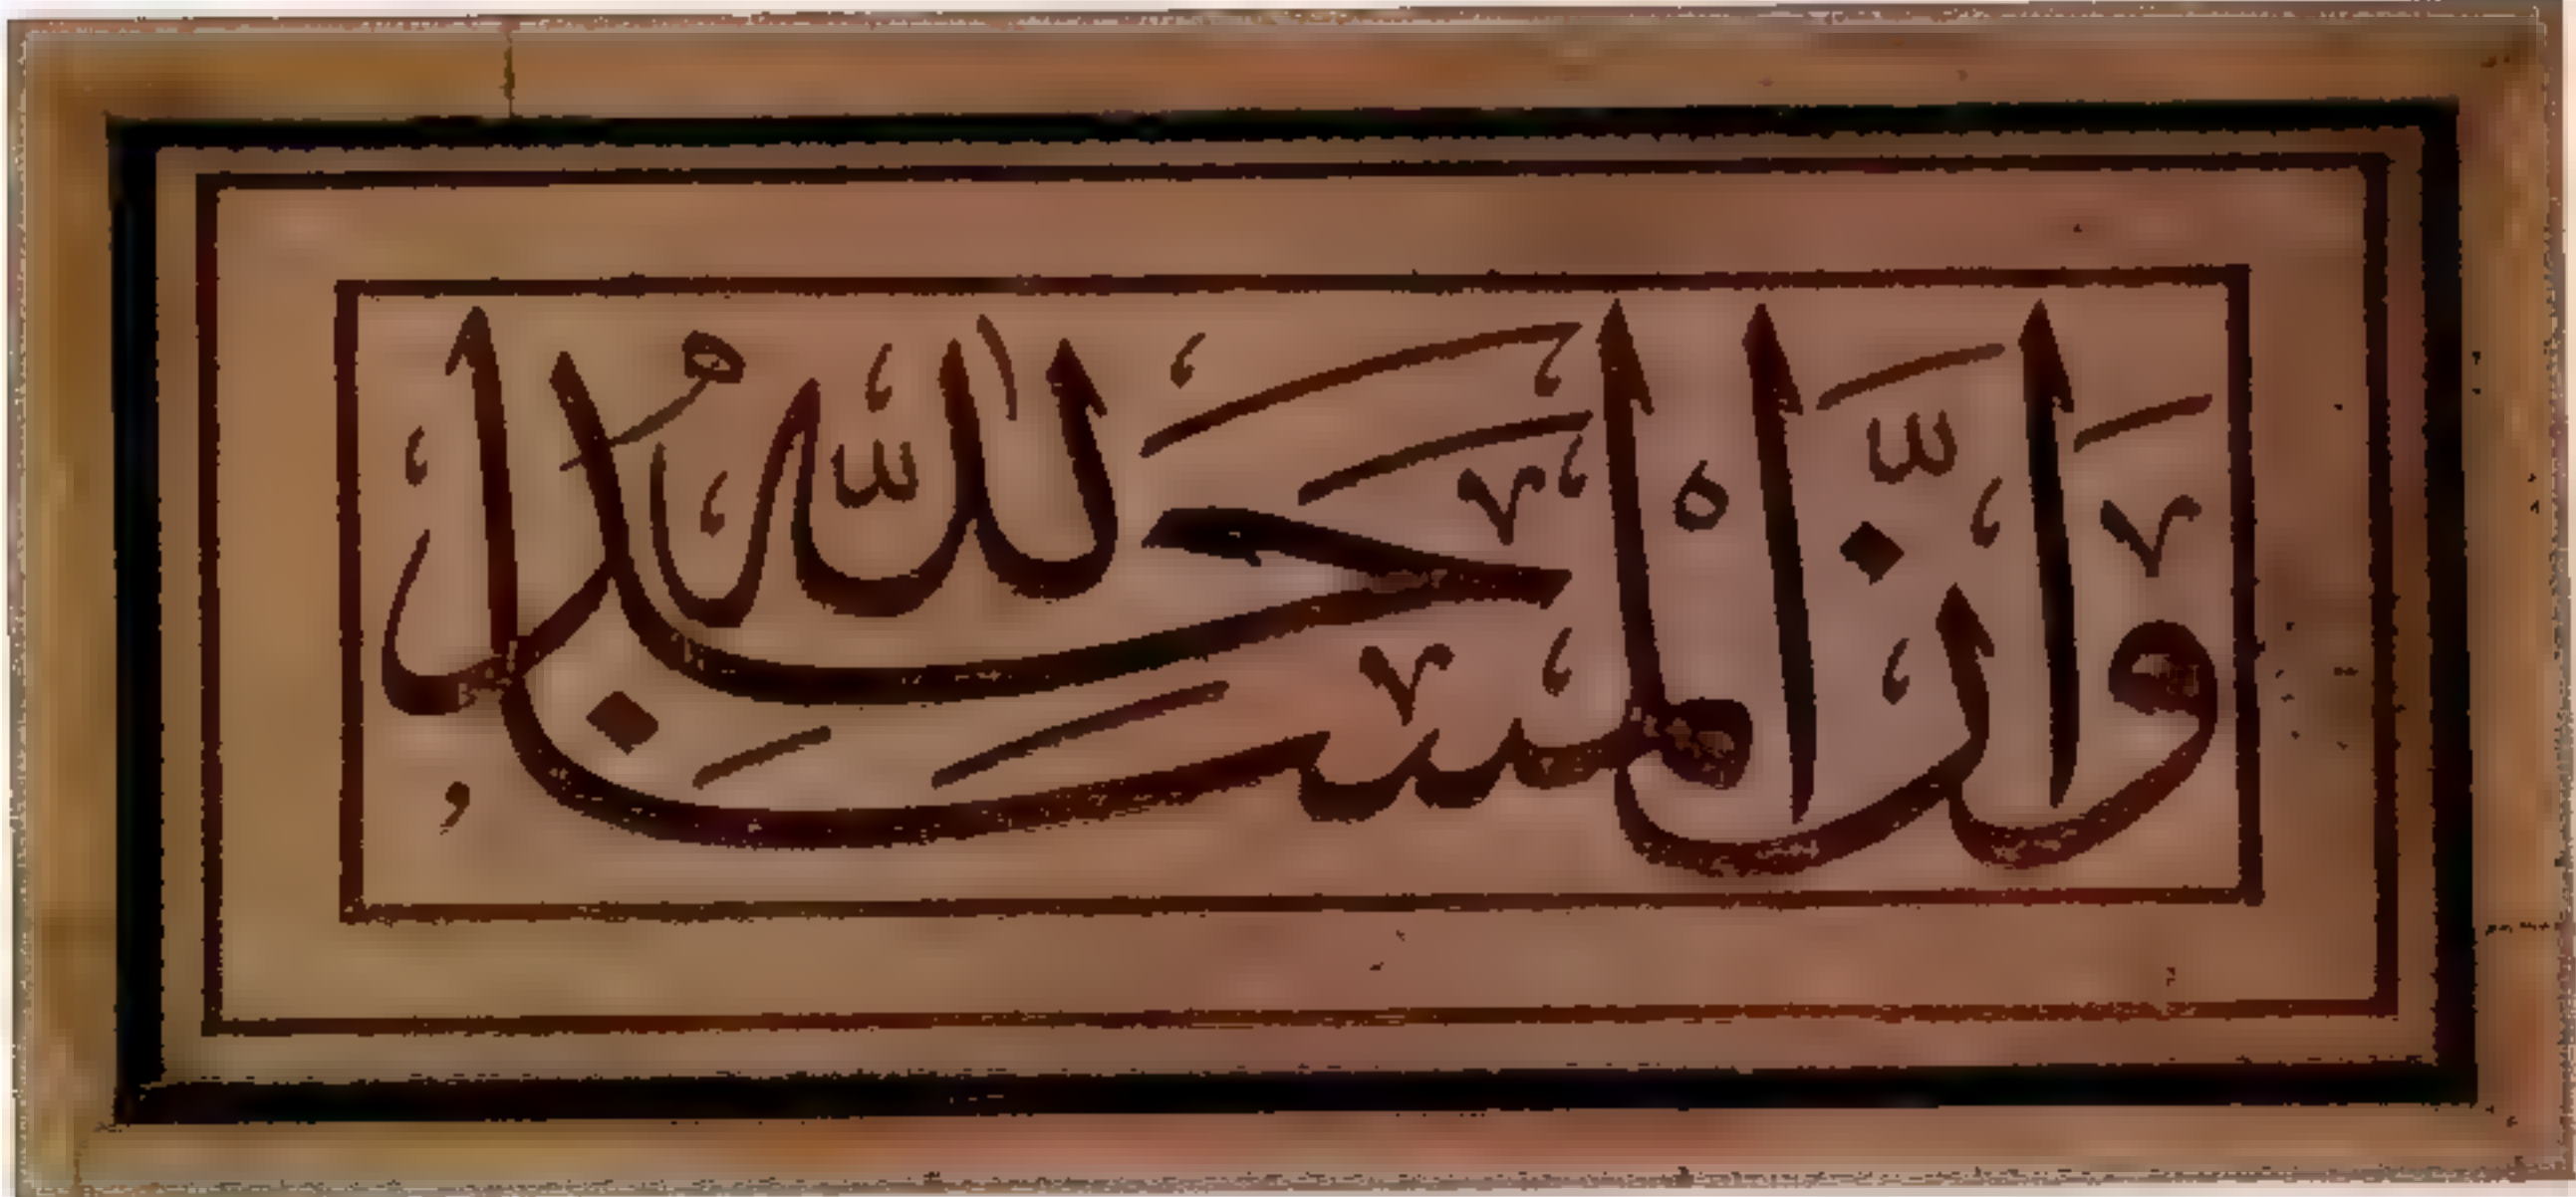 وَأَنَّ الْمَسَاجِدَ لِلَّهِ